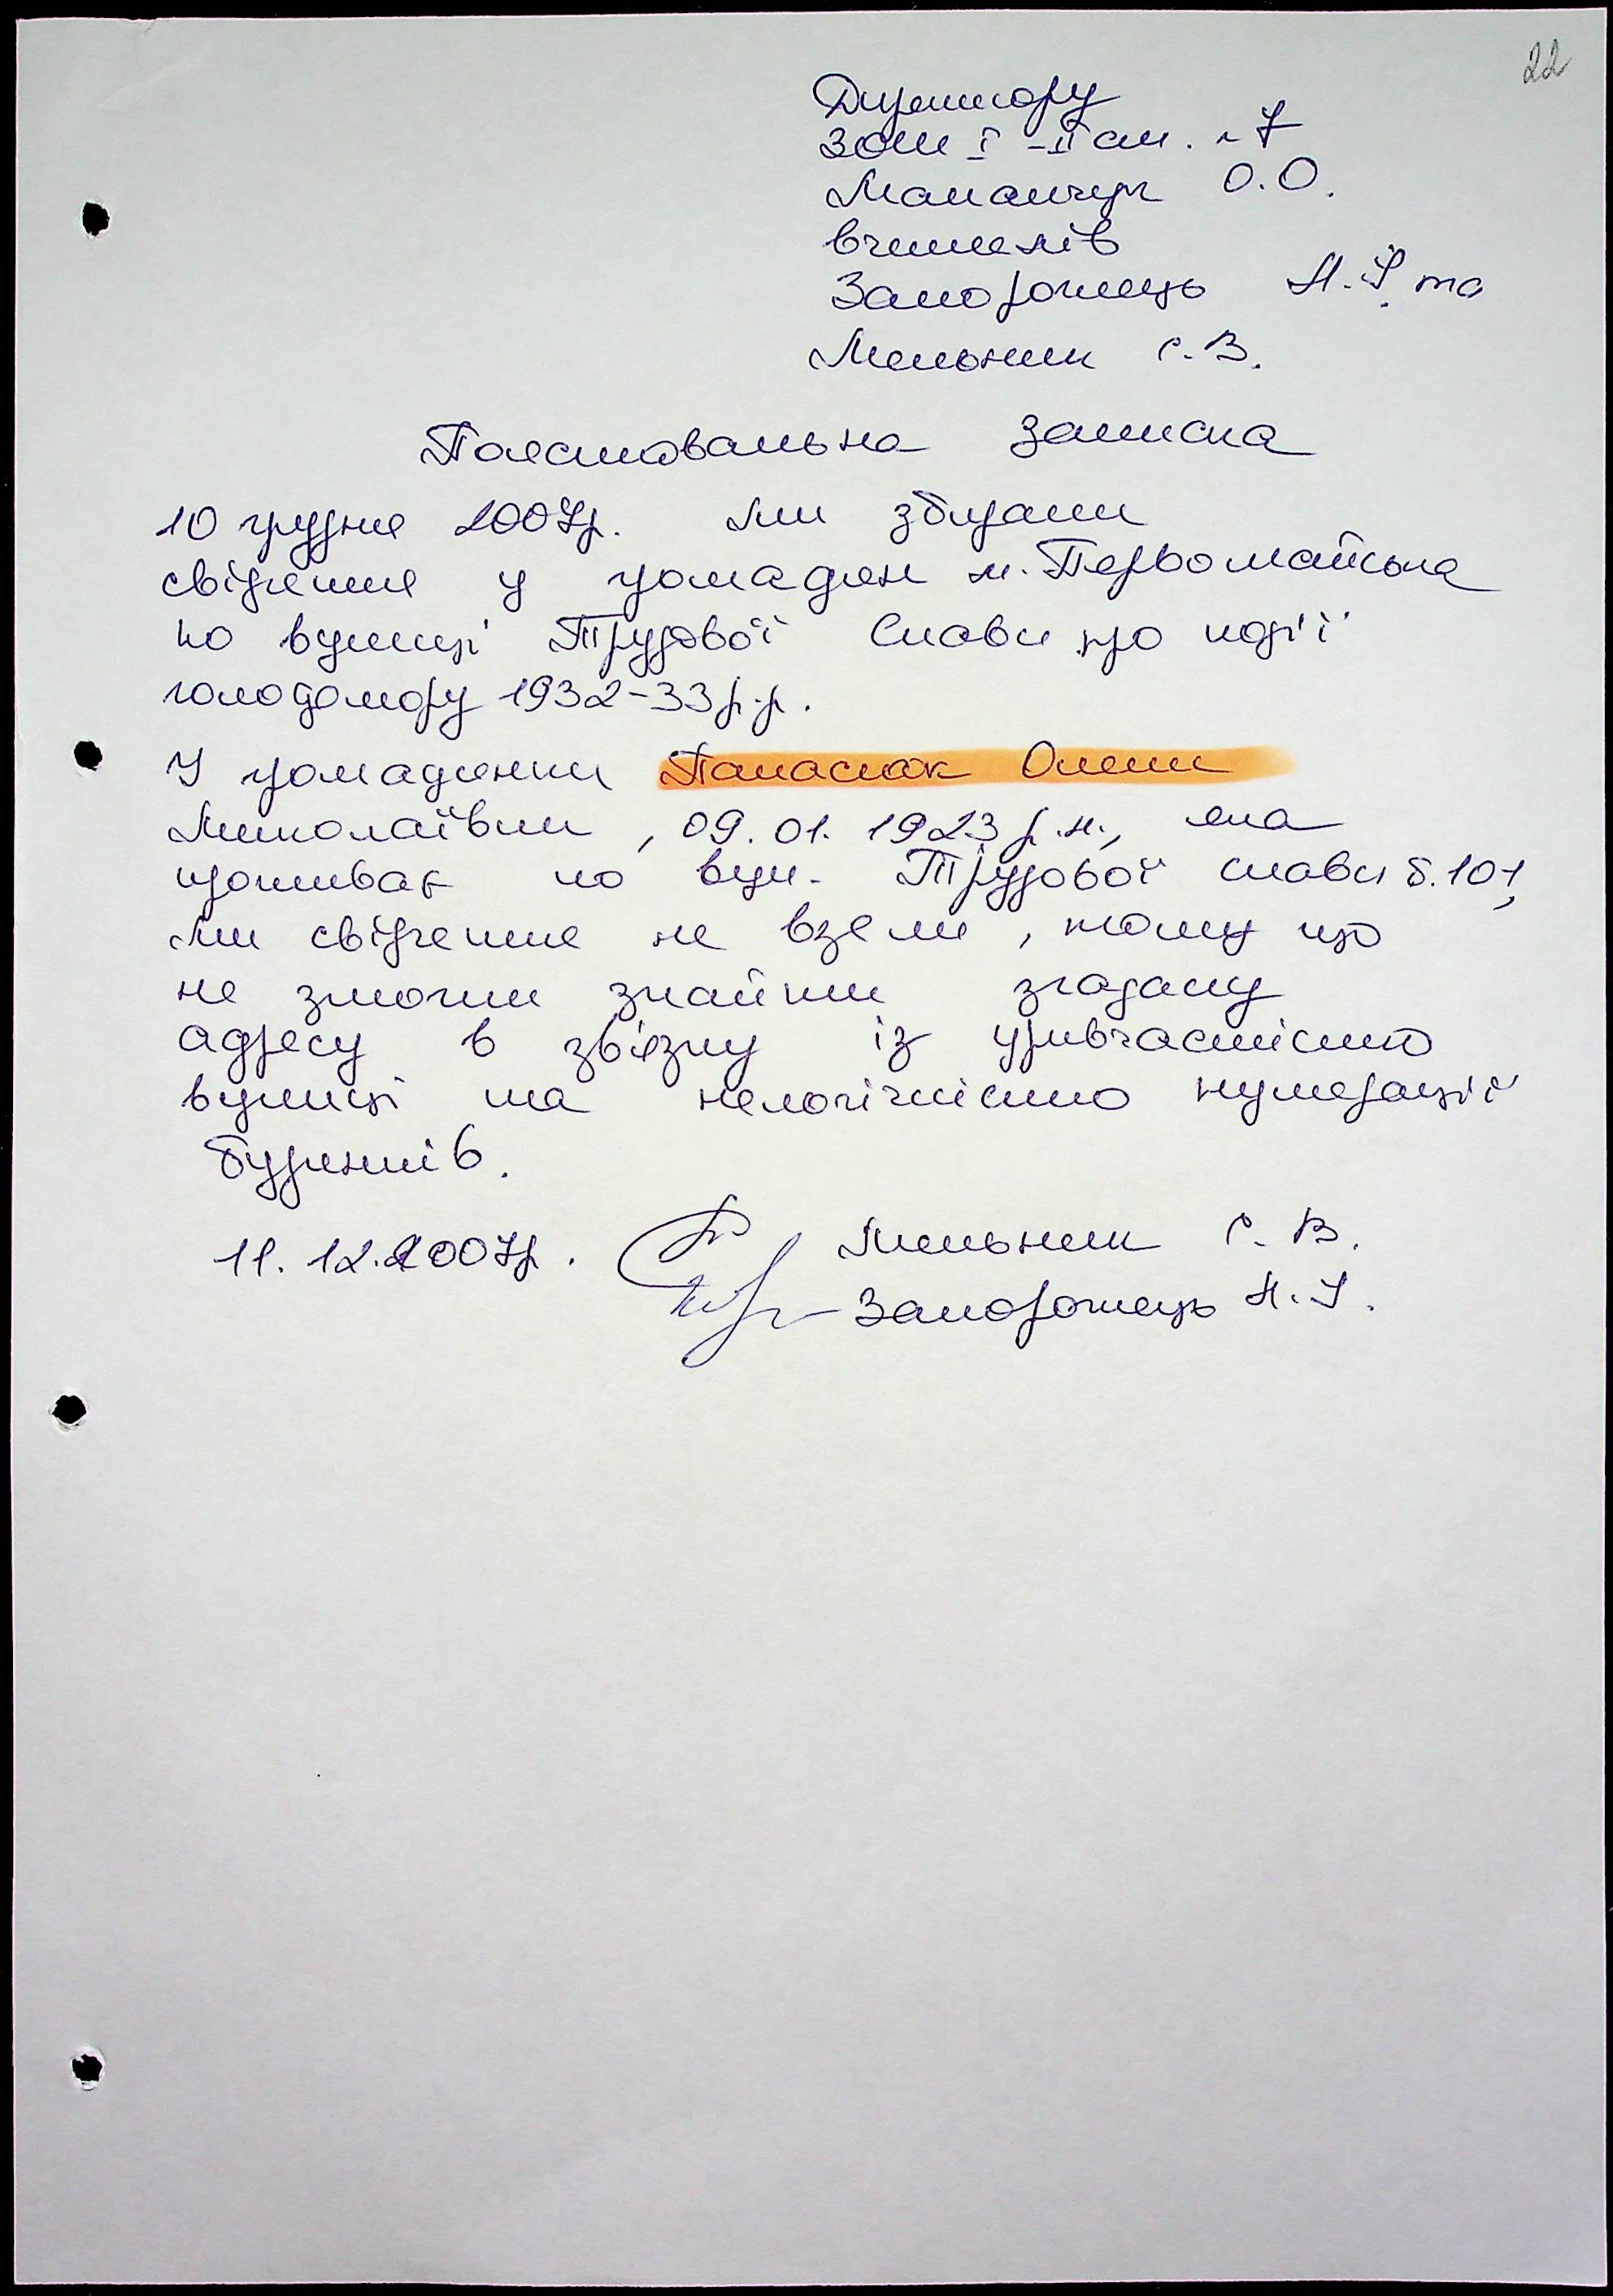 22
Директору
ЗОШ I-II ст. №7
О.О.
вчителів
Запорожець Н.І. та
Мельник С.В.
Пояснювальна записка
10 грудня 2007р. ми збирали
свідчення у громадян м. Первомайська
по вулиці Трудової Слави про події
голодомору 1932-33 р.р.
У громадянки Панасюк Олени
Миколаївни, 09.01.1923 р.н., яка
проживає по вул. Трудової слави б.101,
ми свідчення не взяли, тому що
не змогли знайти згадану
адресу в зв'язку із уривчастістю
вулиці та нелогічністю нумерації
будинків.
11.12.2007р. Мельник С.В.
Запорожець Н.І.